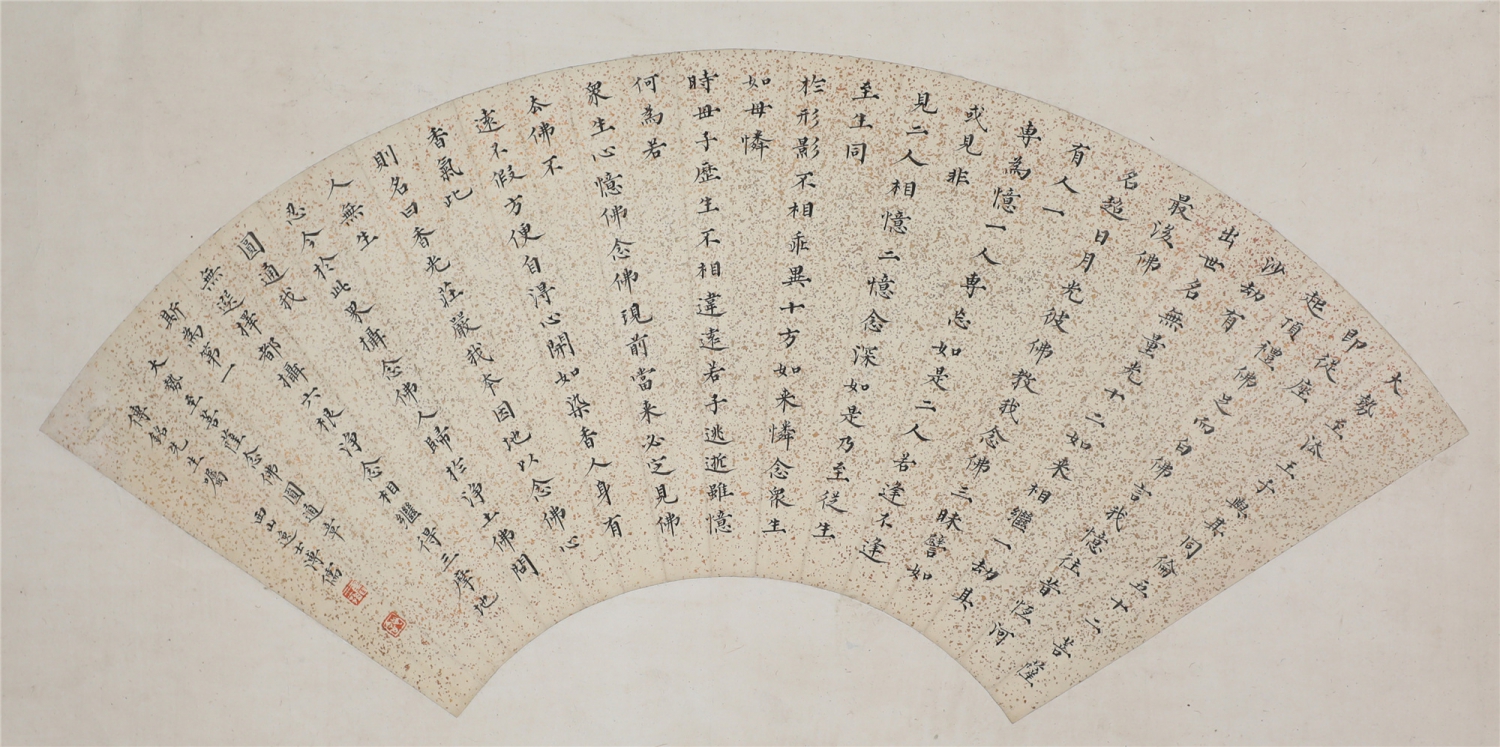 大勢至法王子與其同倫五十二菩薩
即從座
起頂禮佛足而白佛言我憶往昔恒河
沙劫有佛
出世名無量光十二如来相繼一劫其
最後佛
名超日月光彼佛教我念佛三昧譬如
有人一
專為憶一人專忘如是二人若逢不逢
或見非
見二人相憶二憶念深如是乃至從生
至生同
於形影不相乖異十方如来憐念眾生
如母憐
時母子歷生不相違遠若子逃逝雖憶
何為若
眾生心憶佛念佛現前當来必定見佛
去佛不
遠不假方便自得心開如染香人身有
香氣此
則名曰香光莊嚴我本因地以念佛心
入無生
忍今於此界攝念佛人歸於淨土佛問
圓通我
無選擇都攝六根淨念相繼得三摩地
斯為第一
大勢至菩薩念佛圓通章
傳銘先生屬
西山逸士溥儒